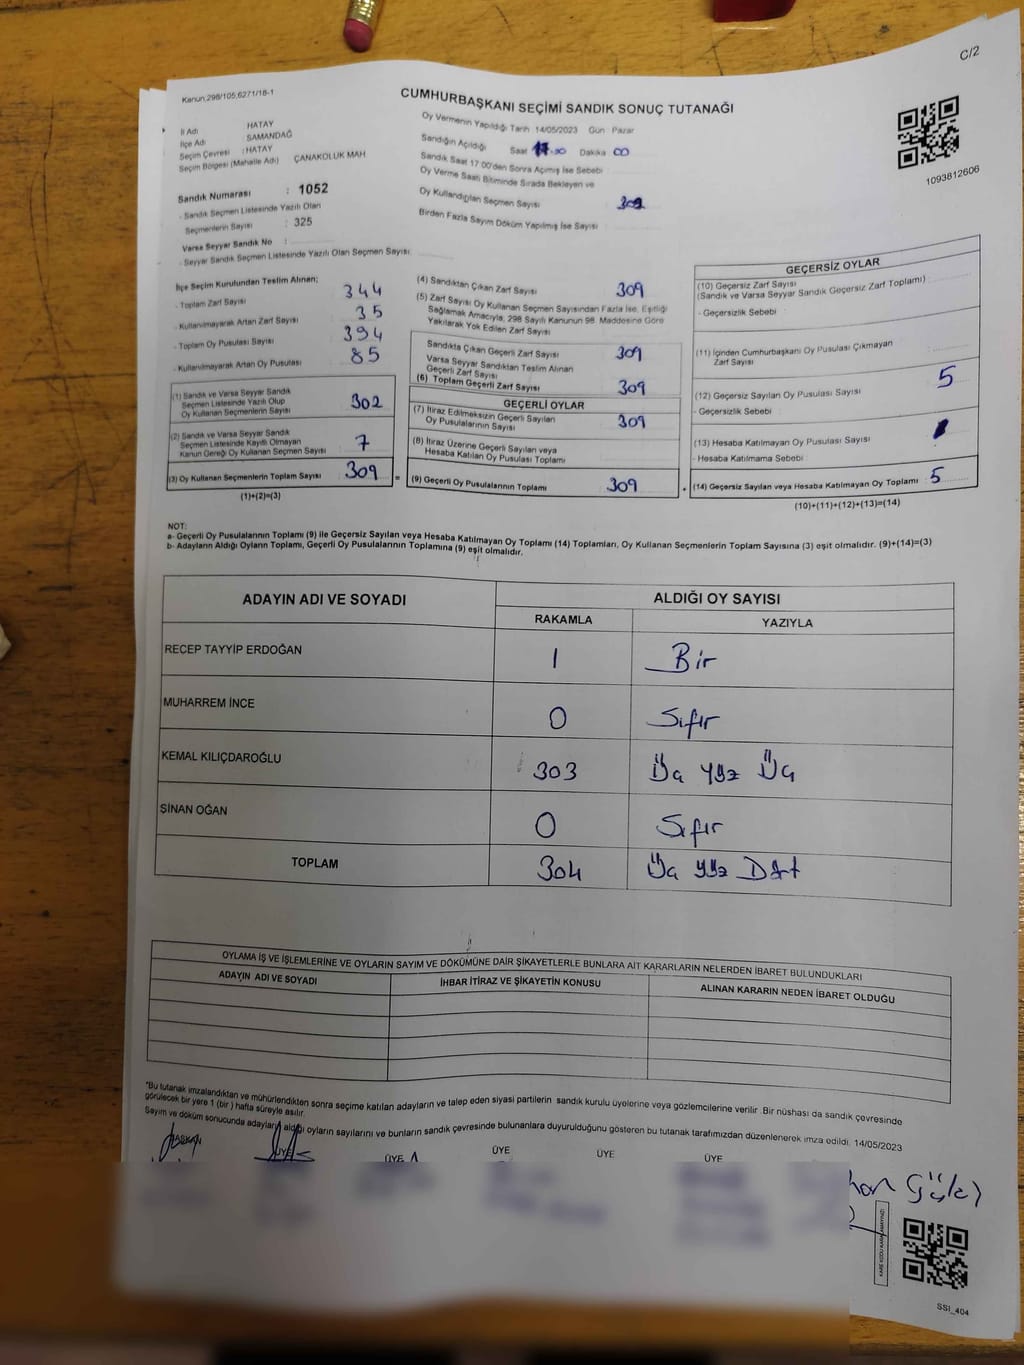 C/2
Kanun.298/105,6271/18-1
CUMHURBAŞKANI SEÇİMİ SANDIK SONUÇ TUTANAĞI
İl Adı HATAY
İlçe Adı SAMANDAĞ
Seçim Çevresi : HATAY
Seçim Bölgesi (Mahalle Adı) ÇANAKOLUK MAH
Sandık Numarası : 1052
- Sandık Seçmen Listesinde Yazılı Olan
Seçmenlerin Sayısı : 325
Varsa Seyyar Sandık No :
- Seyyar Sandık Seçmen Listesinde Yazılı Olan Seçmen Sayısı
Oy Vermenin Yapıldığı Tarih 14/05/2023 Gün Pazar
Sandığın Açıldığı Saat Dakika 00
Sandık Saat 17:00'den Sonra Açılmış İse Sebebi
Oy Verme Saati Bitiminde Sırada Bekleyen ve
Oy Kullandırılan Seçmen Sayısı
Birden Fazla Sayım Döküm Yapılmış İse Sayısı :
1093812606
İlçe Seçim Kurulundan Teslim Alınan;
- Toplam Zarf Sayısı 344
- Kullanılmayarak Artan Zarf Sayısı 35
- Toplam Oy Pusulası Sayısı 394
- Kullanılmayarak Artan Oy Pusulası 85
(1) Sandık ve Varsa Seyyar Sandık
Seçmen Listesinde Yazılı Olup
Oy Kullanan Seçmenlerin Sayısı 302
(2) Sandık ve Varsa Seyyar Sandık
Seçmen Listesinde Kayıtlı Olmayan
Kanun Gereği Oy Kullanan Seçmen Sayısı 7
(3) Oy Kullanan Seçmenlerin Toplam Sayısı 309 =
(1)+(2)=(3)
(4) Sandıktan Çıkan Zarf Sayısı 309
(5) Zarf Sayısı Oy Kullanan Seçmen Sayısından Fazla İse, Eşitliği
Sağlamak Amacıyla, 298 Sayılı Kanunun 98. Maddesine Göre
Yakılarak Yok Edilen Zarf Sayısı
Sandıkta Çıkan Geçerli Zarf Sayısı 309
Varsa Seyyar Sandıktan Teslim Alınan
Geçerli Zarf Sayısı
(6) Toplam Geçerli Zarf Sayısı 309
GEÇERLİ OYLAR
(7) İtiraz Edilmeksizin Geçerli Sayılan
Oy Pusulalarının Sayısı 309
(8) İtiraz Üzerine Geçerli Sayılan veya
Hesaba Katılan Oy Pusulası Toplamı
(9) Geçerli Oy Pusulalarının Toplamı 309
GEÇERSİZ OYLAR
(10) Geçersiz Zarf Sayısı
(Sandık ve Varsa Seyyar Sandık Geçersiz Zarf Toplamı)
- Geçersizlik Sebebi :
(11) İçinden Cumhurbaşkanı Oy Pusulası Çıkmayan
Zarf Sayısı
(12) Geçersiz Sayılan Oy Pusulası Sayısı 5
- Geçersizlik Sebebi
(13) Hesaba Katılmayan Oy Pusulası Sayısı
- Hesaba Katılmama Sebebi :
(14) Geçersiz Sayılan veya Hesaba Katılmayan Oy Toplamı 5
(10)+(11)+(12)+(13)=(14)
NOT:
a- Geçerli Oy Pusulalarının Toplamı (9) ile Geçersiz Sayılan veya Hesaba Katılmayan Oy Toplamı (14) Toplamları, Oy Kullanan Seçmenlerin Toplam Sayısına (3) eşit olmalıdır. (9)+(14)=(3)
b- Adayların Aldığı Oyların Toplamı, Geçerli Oy Pusulalarının Toplamına (9) eşit olmalıdır.
ADAYIN ADI VE SOYADI ALDIĞI OY SAYISI
RAKAMLA YAZIYLA
RECEP TAYYİP ERDOĞAN 1 Bir
MUHARREM İNCE 0 Sıfır
KEMAL KILIÇDAROĞLU 303 Üç yüz Üç
SİNAN OĞAN 0 Sıfır
TOPLAM 304 Üç yüz Dört
OYLAMA İŞ VE İŞLEMLERİNE VE OYLARIN SAYIM VE DÖKÜMÜNE DAİR ŞİKAYETLERLE BUNLARA AİT KARARLARIN NELERDEN İBARET BULUNDUKLARI
ADAYIN ADI VE SOYADI İHBAR İTİRAZ VE ŞİKAYETİN KONUSU ALINAN KARARIN NEDEN İBARET OLDUĞU
*Bu tutanak imzalandıktan ve mühürlendikten sonra seçime katılan adayların ve talep eden siyasi partilerin sandık kurulu üyelerine veya gözlemcilerine verilir. Bir nüshası da sandık çevresinde
görülecek bir yere 1 (bir) hafta süreyle asılır.
Sayım ve döküm sonucunda adayların aldığı oyların sayılarını ve bunların sandık çevresinde bulunanlara duyurulduğunu gösteren bu tutanak tarafımızdan düzenlenerek imza edildi. 14/05/2023
BAŞKAN ÜYE ÜYE ÜYE ÜYE ÜYE
SSİ_404